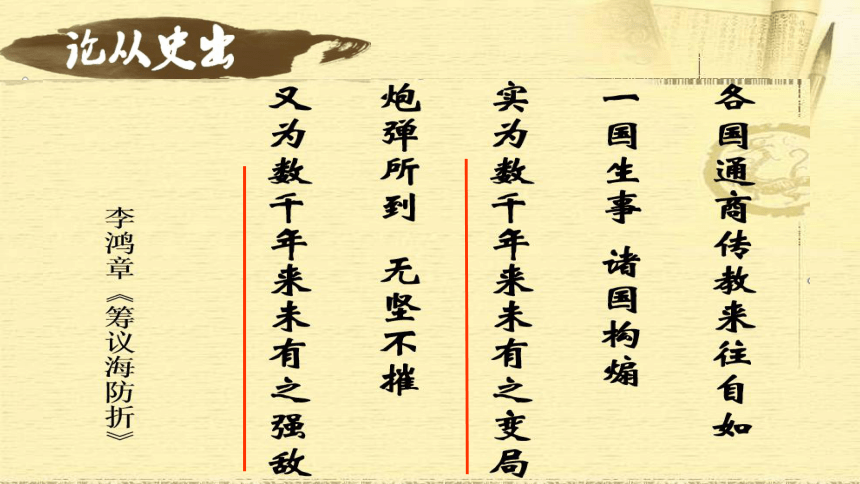 论从史出
各国通商传教来往自如
一国生事 诸国构煽
实为数千年来未有之变局
炮弹所到 无坚不摧
又为数千年来未有之强敌
李鸿章《筹议海防折》